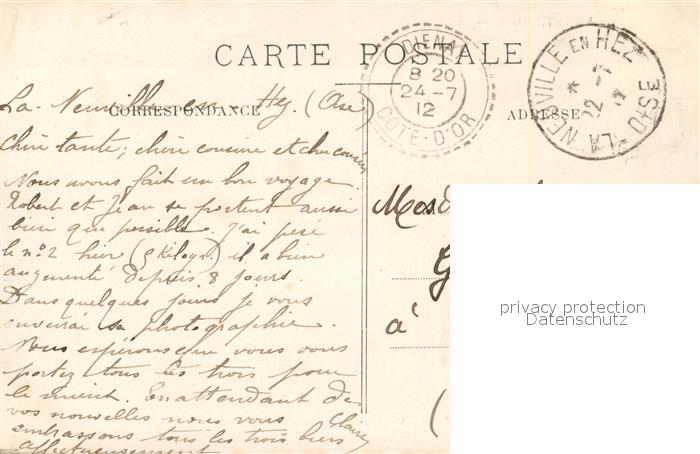 CARTE POSTALE
CORRESPONDANCE
ADRESSE
DIENAY
8 20
24-7
12
COTE-D'OR
LA NEUVILLE EN HEZ
OISE
12
La Neuville en Hez (Oise)
Chère tante, chère cousine et cher cousin
Nous avons fait un bon voyage.
Robert et Jean se portent aussi
bien que possible. J'ai pesé
le n° 2 hier (9 kilogr.) il a bien
augmenté depuis 8 jours.
Dans quelques jours je vous
enverrai sa photographie.
Nous espérons que vous vous
portez tous les trois pour
le mieux. En attendant de
vos nouvelles nous vous
embrassons tous les trois bien
affectueusement
Claire
à
privacy protection
Datenschutz